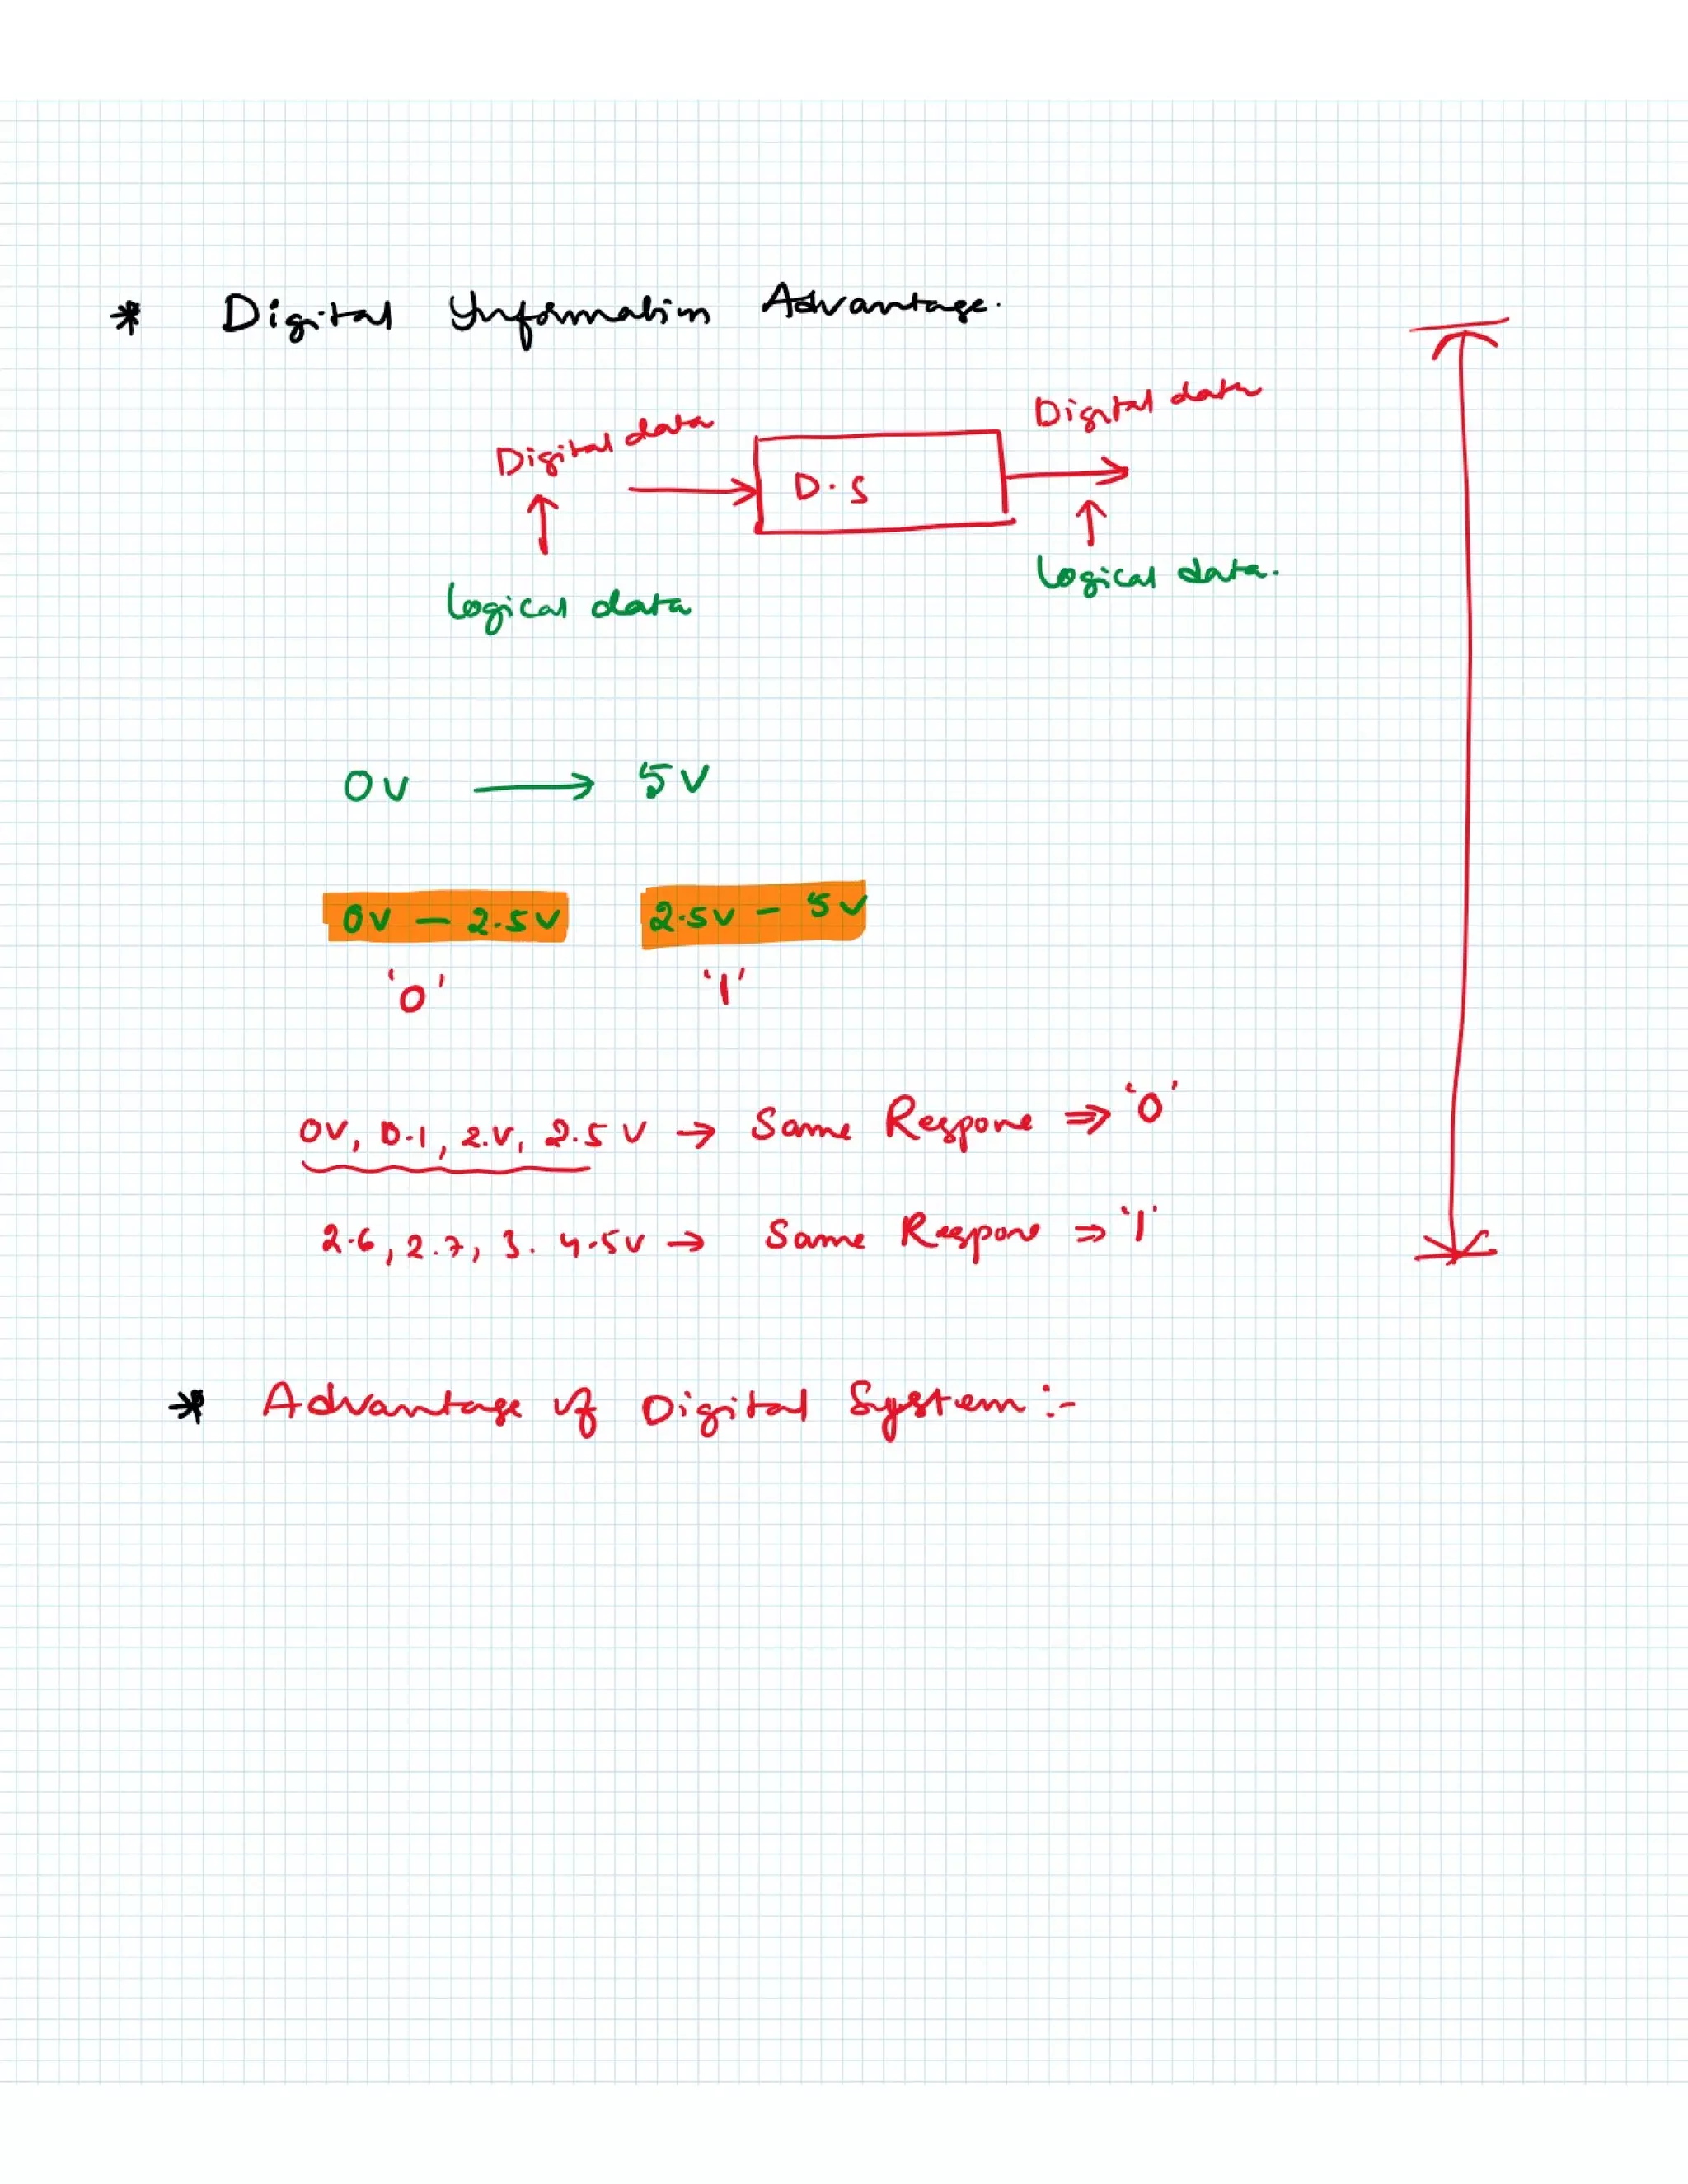 * Digital Information Advantage.
Digital data
Digital data
D.S
Logical data
Logical data.
0V → 5V
0V - 2.5V 2.5V - 5V
'0' '1'
0V, 0.1, 2.V, 2.5 V → Same Respone ⇒ '0'
2.6, 2.7, 3. 4.5V → Same Respone ⇒ '1'
* Advantage of Digital System :-